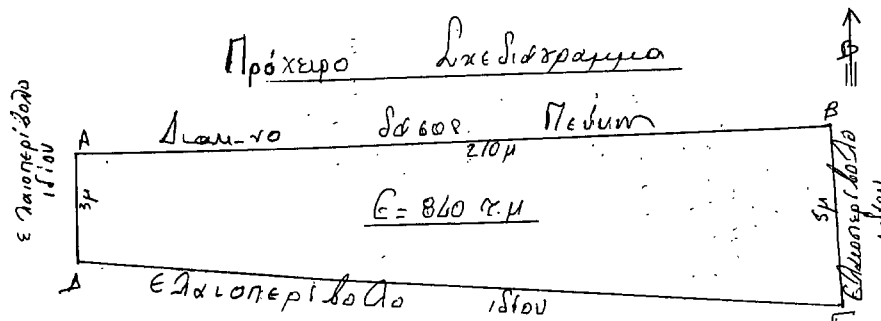 Πρόχειρο Σχεδιάγραμμα
Β
ελαιοπερίβολο
ιδίου
Α
Διαμ-νο δάσος Πεύκη
Β
210 μ
3μ
Ε = 840 τ.μ
5μ
Ελαιοπερίβολο
ιδίου
Δ
Ελαιοπερίβολο ιδίου
Γ